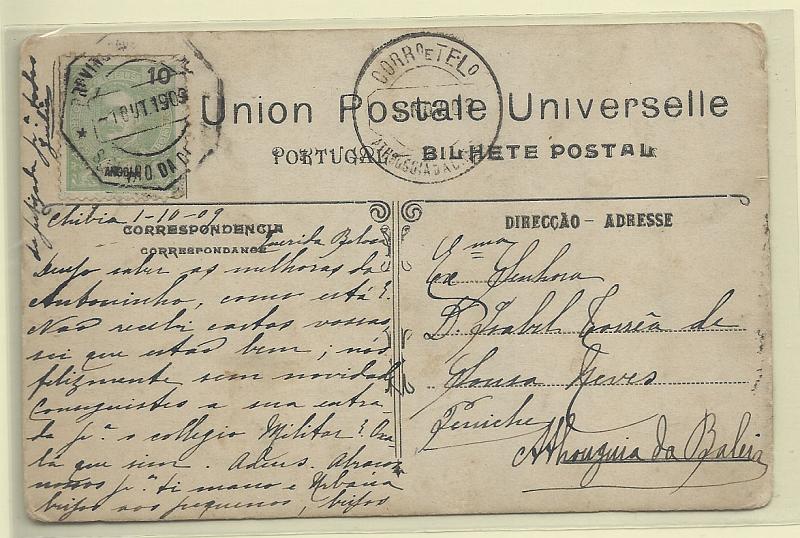 10
PROVINCIA
-1 OUT. 1909
ANGOLA
CORRO E TELO
Union Postale Universelle
PORTUGAL BILHETE POSTAL
Chibia 1-10-09
CORRESPONDENCIA
CORRESPONDANCE
Querida
Desejo saber as melhoras do
Antoninho, como está?
Não recebi cartas vossas,
sei que estas bem; nós
felizmente sem novidade
Conseguistes a sua entra-
da pª o collegio Militar? Oxa-
lá que sim. Adeus. Abraços
nossos pª ti mano e Urbana
beijos aos pequenos,
DIRECÇÃO - ADRESSE
Exma
Senhora
D. Isabel Corrêa de
Sousa Neves
Peniche
Athouguia da Baleia